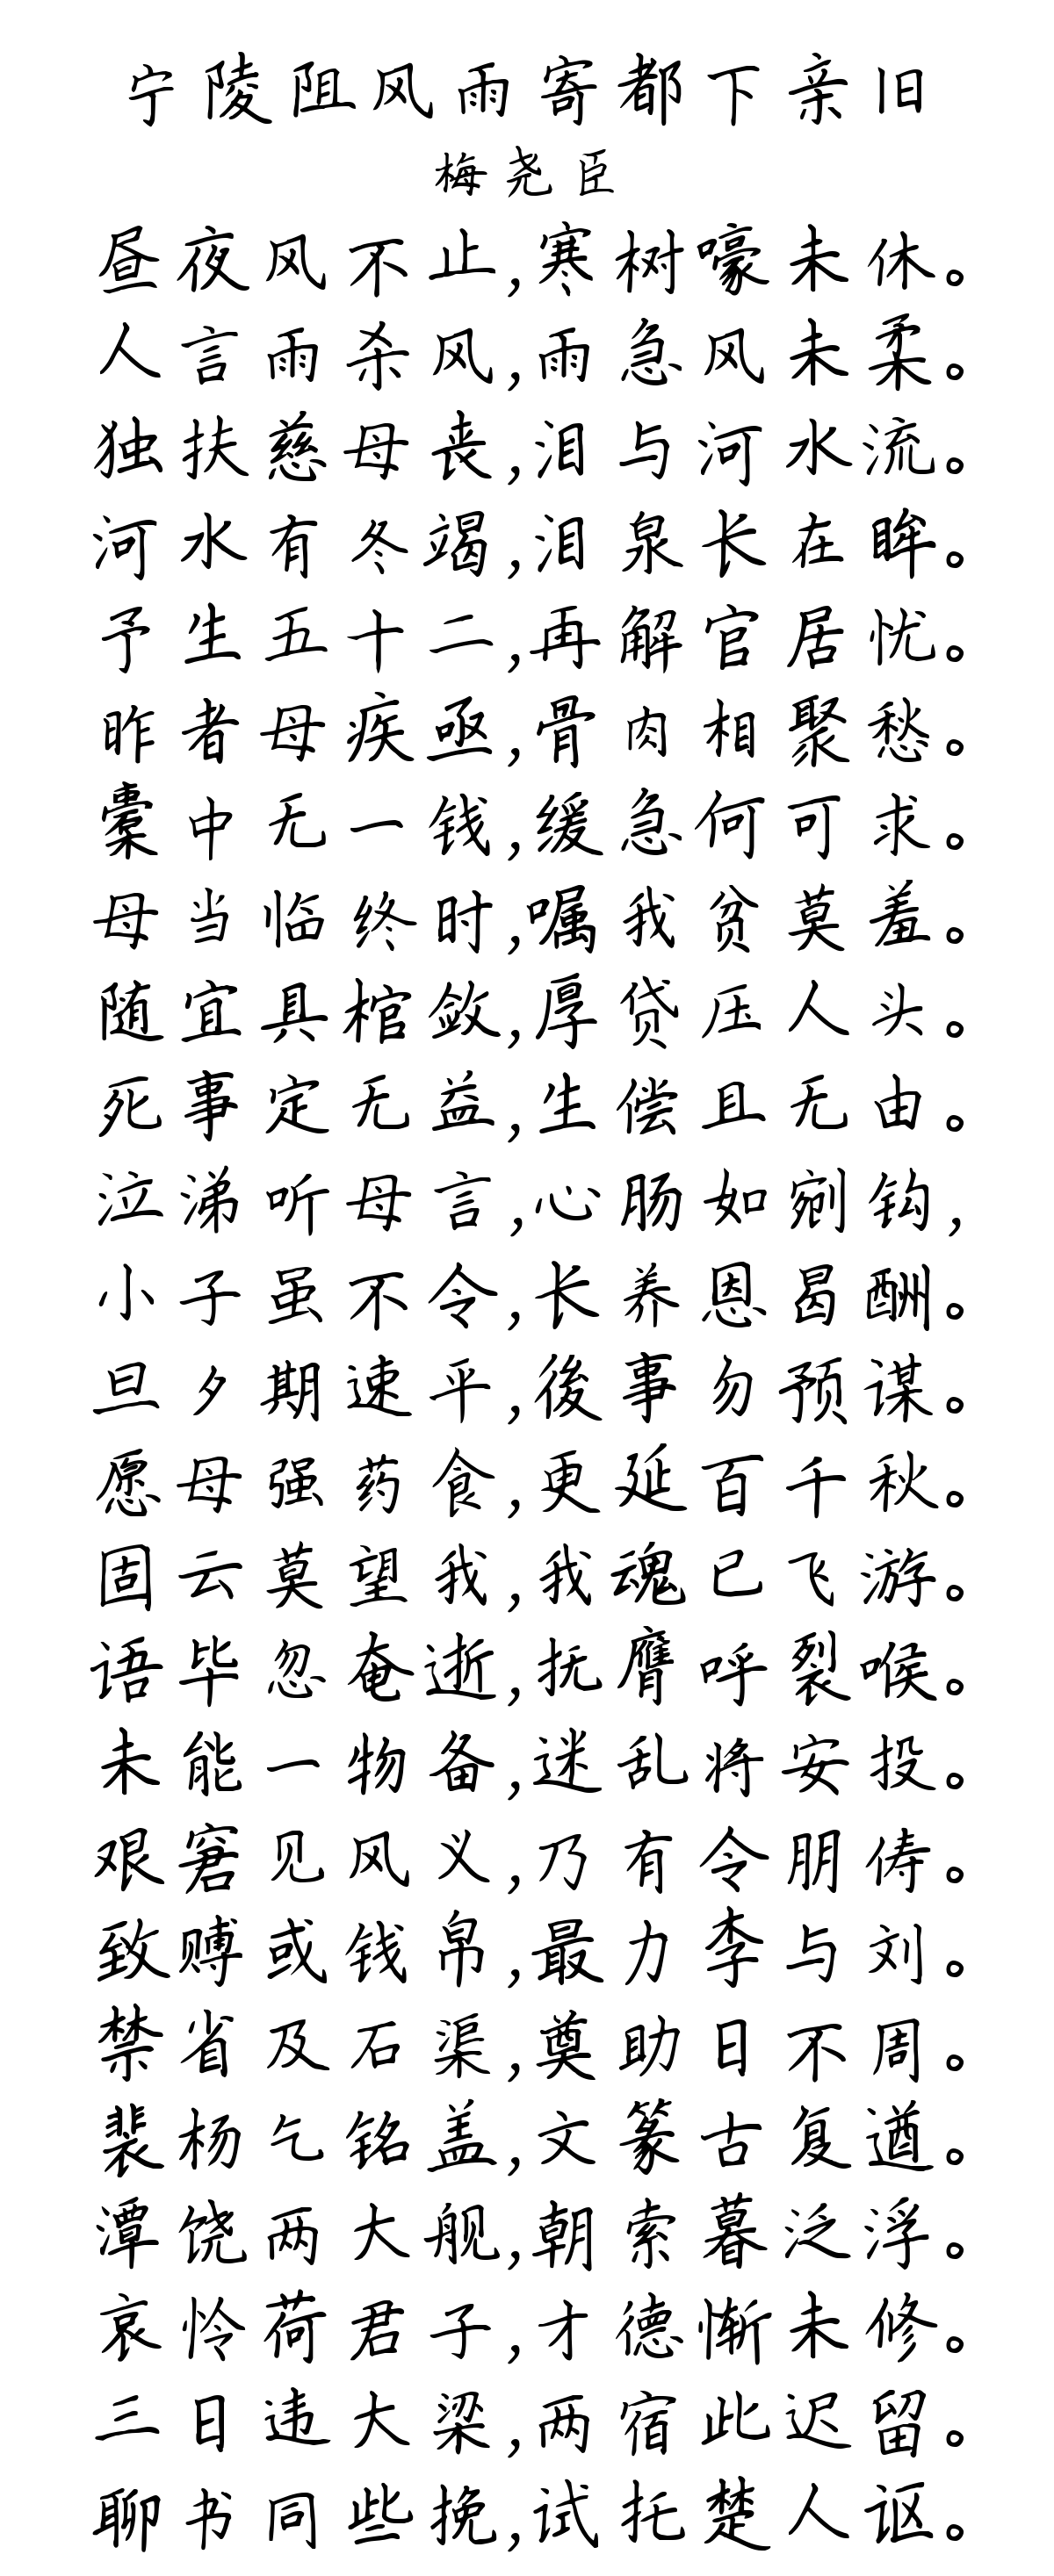 宁陵阻风雨寄都下亲旧
梅尧臣
昼夜风不止,寒树嚎未休。
人言雨杀风,雨急风未柔。
独扶慈母丧,泪与河水流。
河水有冬竭,泪泉长在眸。
予生五十二,再解官居忧。
昨者母疾亟,骨肉相聚愁。
橐中无一钱,缓急何可求。
母当临终时,嘱我贫莫羞。
随宜具棺敛,厚贷压人头。
死事定无益,生偿且无由。
泣涕听母言,心肠如剜钩,
小子虽不令,长养恩曷酬。
旦夕期速平,後事勿预谋。
愿母强药食,更延百千秋。
固云莫望我,我魂已飞游。
语毕忽奄逝,抚膺呼裂喉。
未能一物备,迷乱将安投。
艰窘见风义,乃有令朋俦。
致赙或钱帛,最力李与刘。
禁省及石渠,奠助日不周。
裴杨乞铭盖,文篆古复遒。
潭饶两大舰,朝索暮泛浮。
哀怜荷君子,才德惭未修。
三日违大梁,两宿此迟留。
聊书同些挽,试托楚人讴。